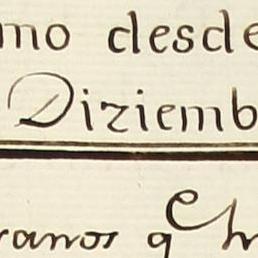 mo desde
Diziemb
ranos q̃ h